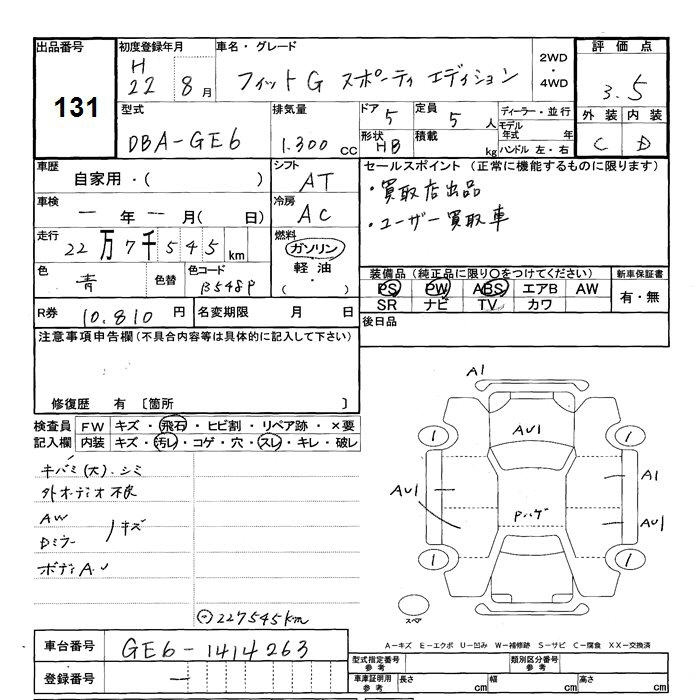 出品番号 初度登録年月 車名・グレード 2WD・4WD 評価点
131 H 22 8月 フィットG スポーティ エディション 3.5
型式 排気量 ドア 5 定員 5人 ディーラー・並行 外装 内装
DBA-GE6 1.300cc 形状 HB 積載 kg モデル年式 年 ハンドル 左・右 C D
車歴 シフト セールスポイント (正常に機能するものに限ります)
自家用・( ) AT ・買取店出品
車検 冷房 ・ユーザー買取車
一年一月( 日) AC
走行 燃料
22万7千545km ガソリン
色 色替 色コード 軽油 装備品 (純正品に限り○をつけてください) 新車保証書
青 B548P ( ・ ) PS PW ABS エアB AW 有・無
SR ナビ TV カワ
R券 10.810円 名変期限 月 日 後日品
注意事項申告欄 (不具合内容等は具体的に記入して下さい)
修復歴 有 〔箇所 〕
検査員 FW キズ・飛石・ヒビ割・リペア跡・×要
記入欄 内装 キズ・汚レ・コゲ・穴・スレ・キレ・破レ
キバミ(大).シミ
外オーディオ不良
AW
Dミラー
キズ
ボディA.U
⊖227545km
A1
AU1
1
1
AU1
A1
Pハゲ
AU1
1
1
スペア
A-キズ E-エクボ U-凹み W-補修跡 S-サビ C-腐食 XX-交換済
車台番号 GE6-1414263 型式指定番号 参考 類別区分番号 参考
登録番号 車庫証明用 参考 長さ cm 幅 cm 高さ cm